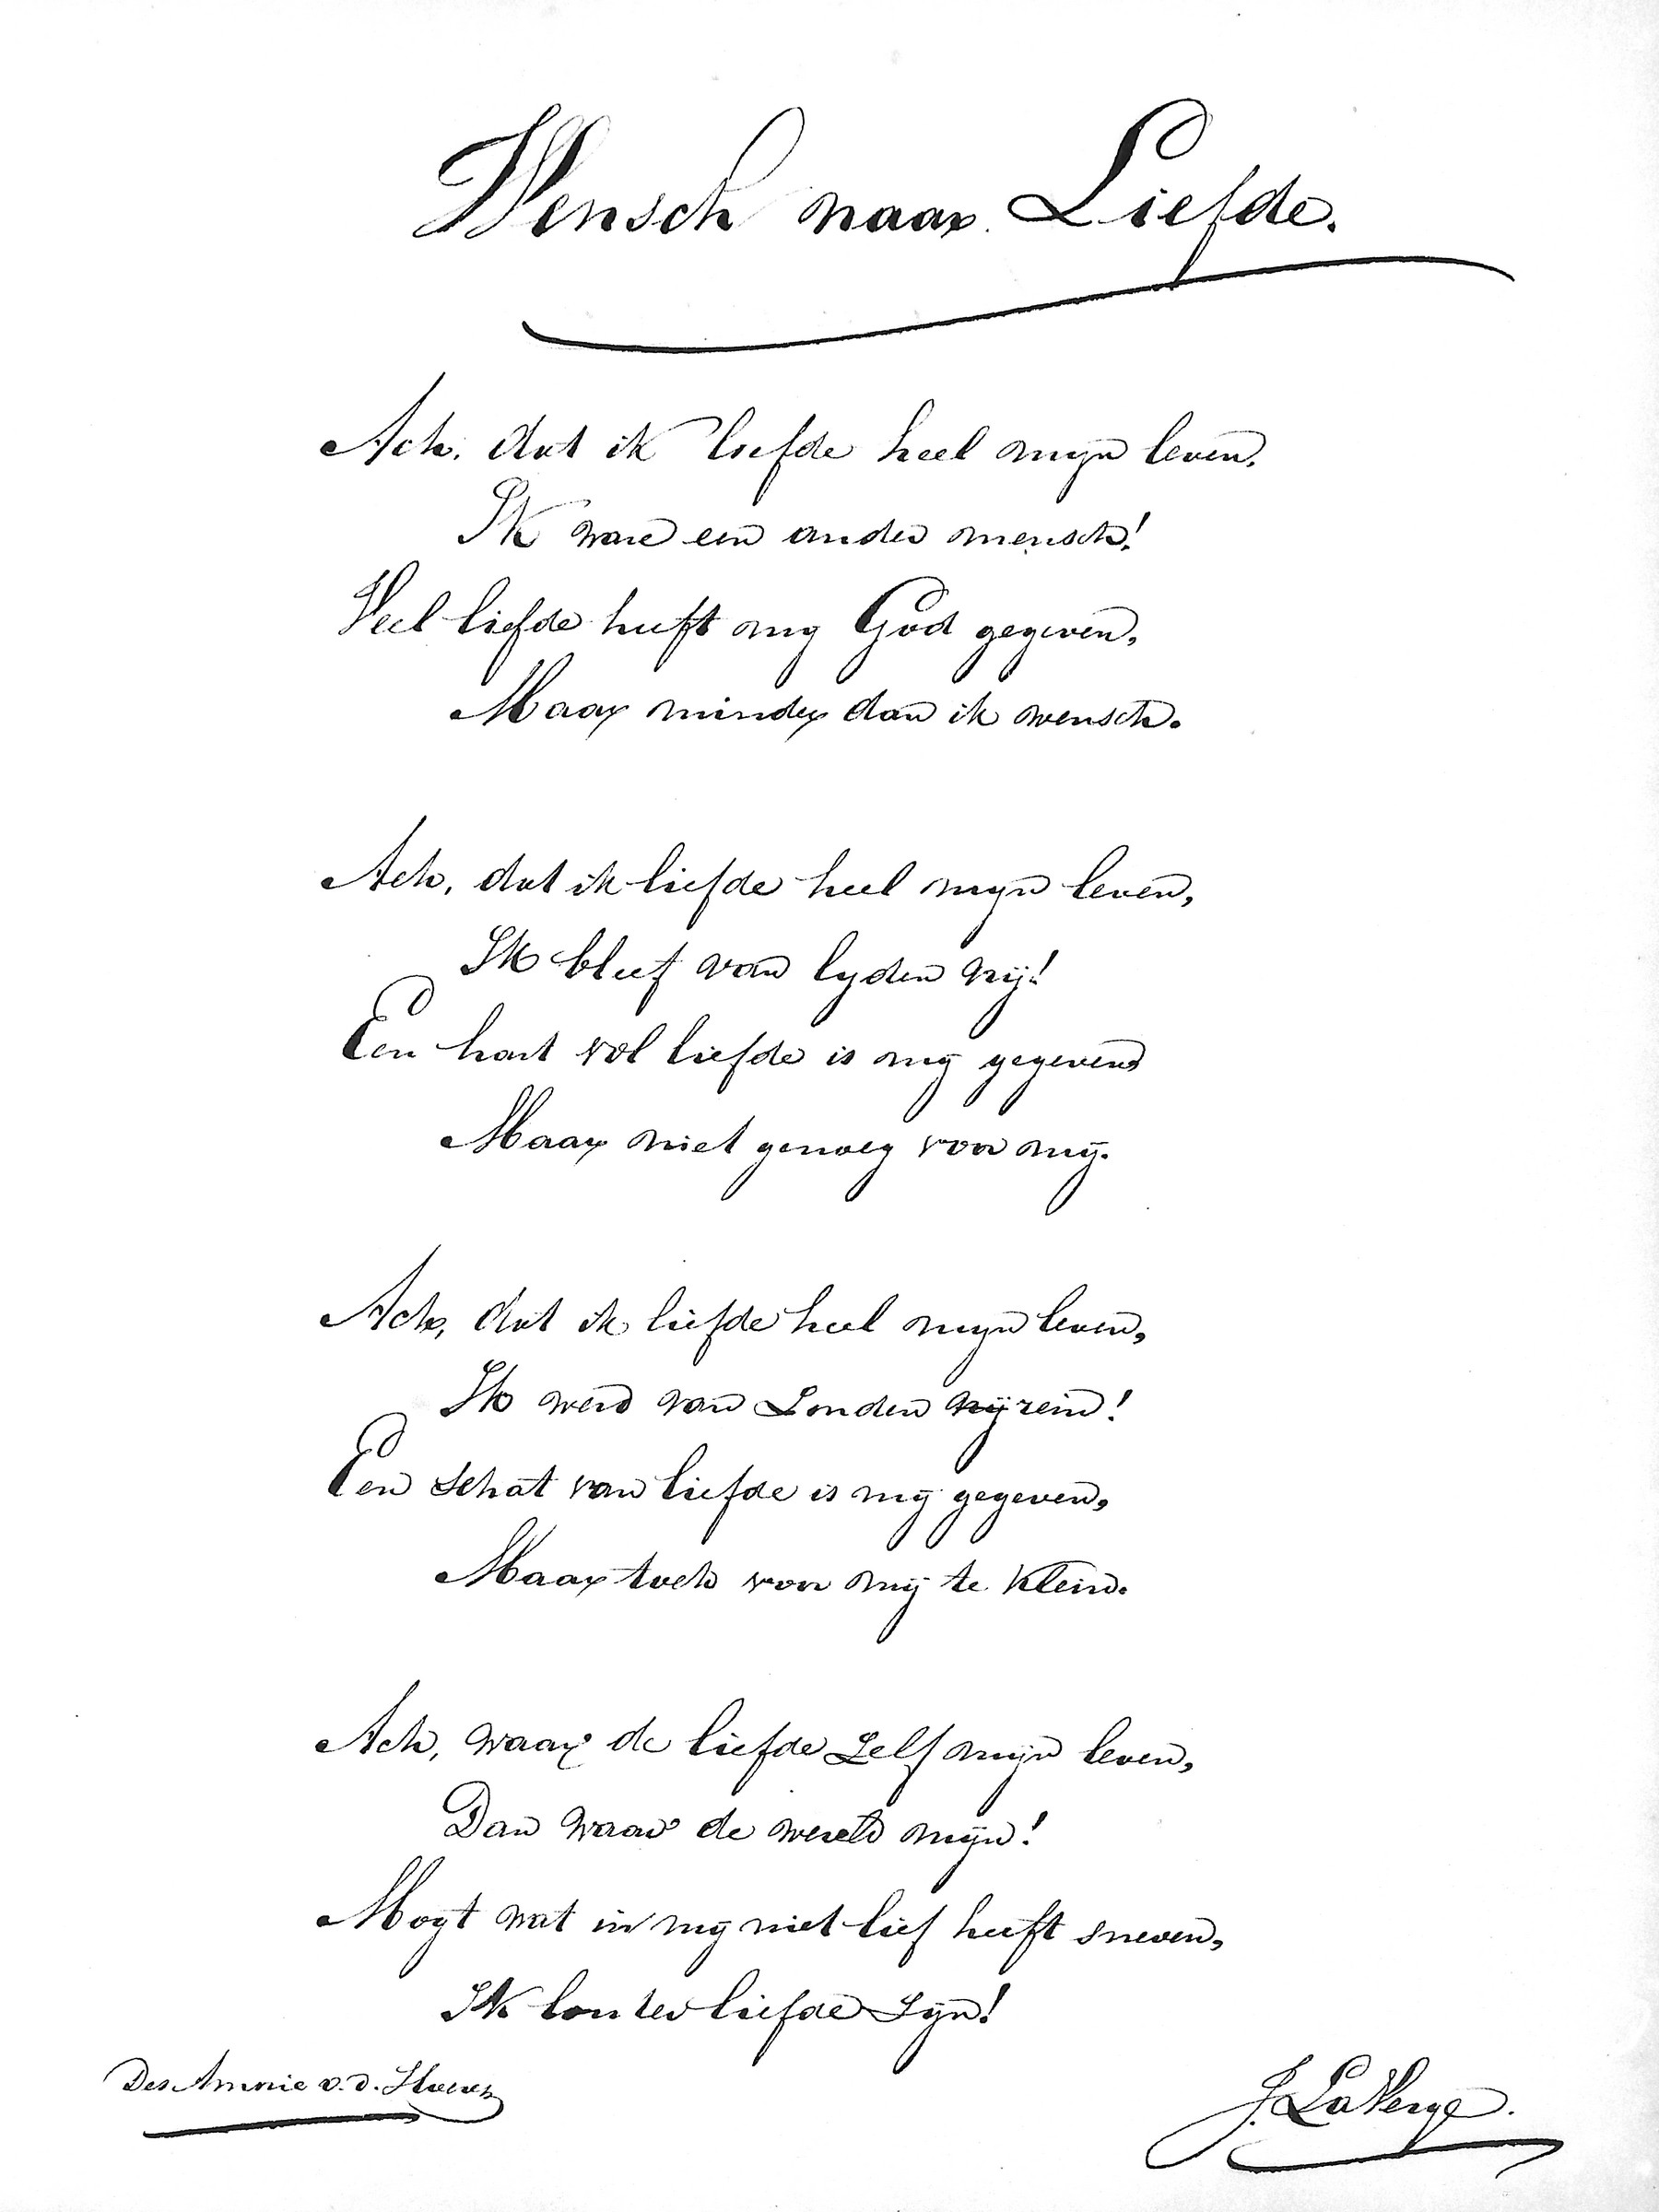 Wensch naar Liefde.
Ach, dat ik liefde heel mijn leven,
Ik ware een ander mensch!
Veel liefde heeft mij God gegeven,
Maar minder dan ik wensch.
Ach, dat ik liefde heel mijn leven,
Ik bleef van lyden vrij!
Een hart vol liefde is mij gegeven
Maar niet genoeg voor mij.
Ach, dat ik liefde heel mijn leven,
Ik werd van Zonden vrij rein!
Een Schat van liefde is mij gegeven,
Maar toch voor mij te klein.
Ach, waar de liefde Zelf mijn leven,
Dan waar de wereld mijn!
Mogt wat in mij niet lief heeft sneven,
Ik louter liefde Zijn!
Des Amorie v.d. Hoeven
J. LaVerge.